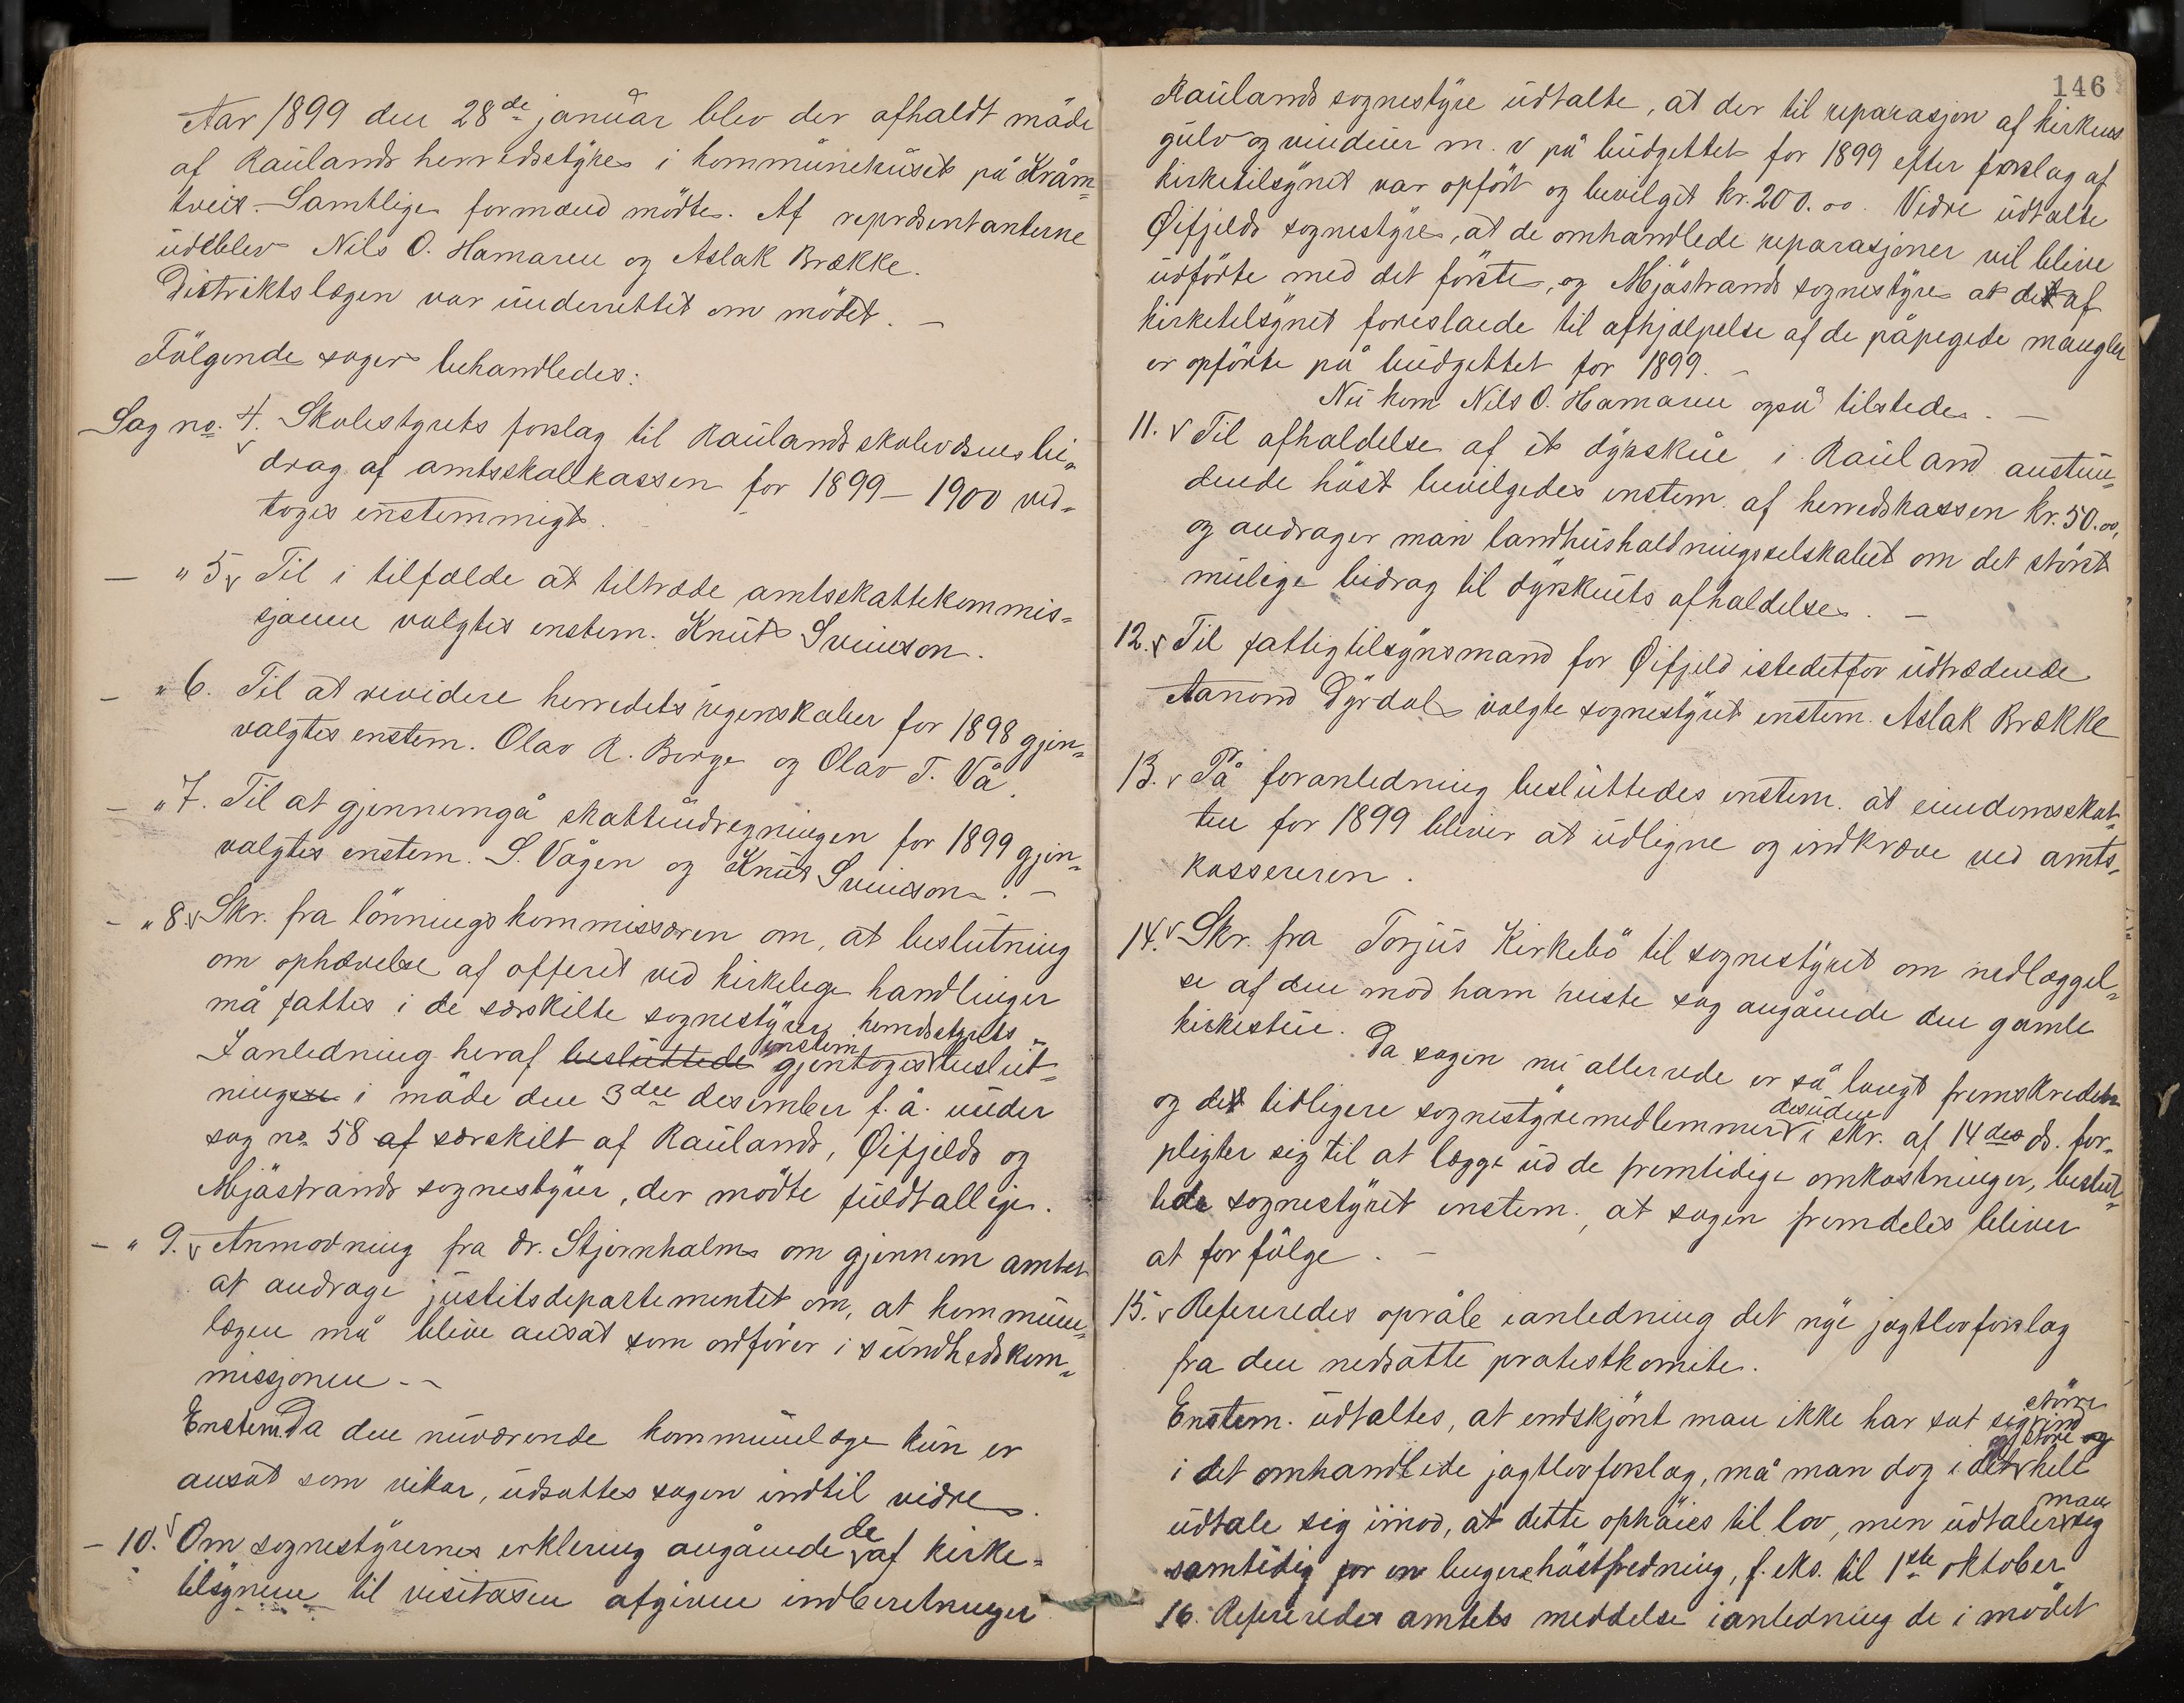 Aar 1899 den 28de januar blev der afhaldt möde
af Raulands herredsstyre i kommunehuset på Kråm-
tveit. Samtlige formænd mödte. Af repræsentanterne
udeblev Nils O. Hamaren og Aslak Brække.
Distriktslægen var underrettet om mödet. —
Fölgende sager behandledes:
Sag no. 4. Skolestyrets forslag til Raulands skolevæsens bi-
drag af amtsskolekassen for 1899–1900 ved-
toges enstemmigt.
— " 5. Til i tilfælde at tiltræde amtsskattekommis-
sjonen valgtes enstem. Knut Sveinson.
— " 6. Til at revidere herredets regenskaber for 1898 gjen-
valgtes enstem. Olav R. Berge og Olav T. Vå.
— " 7. Til at gjennemgå skatteudregningen for 1899 gjen-
valgtes enstem. S. Vågen og Knut Sveinson. —
— " 8. Skr. fra lönningskommissæren om, at beslutning
om ophævelse af offeret ved kirkelege handlinger
må fattes i de særskilte sognestyrer.
I anledning heraf besluttede enstem. gjentoges herredsstyrets beslut-
ning i möde den 3den desember f. å. under
sag no. 58 af særskilt af Raulands, Øifjelds og
Mjåstrands sognestyrer, der mödte fuldtallige.
— " 9. Anmodning fra dr. Stjernholm om gjennem amtet
at andrage justitsdepartementet om, at kommune-
lægen må blive ansat som ordförer i sundhedskom-
missjonen. —
Enstem. Da den nuværende kommunelæge kun er
ansat som vikar, udsattes sagen indtil vidre.
— 10. Om sognestyrernes erklering angående de af kirke-
tilsynene til visitasen afgivne indberetninger
146
Raulands sognestyre udtalte, at der til reparasjon af kirkens
gulv og vinduer m. v på budgettet for 1899 efter forslag af
kirketilsynet var opfört og bevilget kr. 200.00. Vidre udtalte
Øifjelds sognestyre, at de omhandlede reparasjoner vil blive
udförte med det förste, og Mjåstrands sognestyre at det af
kirketilsynet foreslaede til afhjælpelse af de påpegede mangler
er opförte på budgettet for 1899. —
Nu kom Nils O. Hamaren også tilstede. —
11. Til afhaldelse af et dyrskue i Rauland anstun-
dende höst bevilgedes enstem. af herredskassen kr. 50.00,
og andrager man landhusholdningsselskabet om det störst
mulige bidrag til dyrskuets afholdelse. —
12. Til fattigtilsynsmand for Øifjeld istedetfor udtrædende
Aanond Dyrdal valgte sognestyret enstem. Aslak Brække
13. På foranledning besluttedes enstem. at eiendomsskat-
ten for 1899 bliver at udligne og indkræve ved amts-
kassereren.
14. Skr. fra Torjus Kirkebö til sognestyret om nedlæggel-
se af den mod ham reiste sag angående den gamle
kirkestue. Da sagen nu allerede er så langt fremskreden
og det tidligere sognestyremedlemmer desuden i skr. af 14des ds. for-
pligter sig til at lægge ud de fremtidige omkostninger, beslut-
tede sognestyret enstem., at sagen fremdeles bliver
at forfölge. —
15. Refereredes opråb i anledning det nye jagtlovforslag
fra den nedsatte protestkomite.
Enstem. udtaltes, at endskjönt man ikke har sat sig större ind
i det omhandlede jagtlovforslag, må man dog i det store og hele
udtale sig imod, at dette ophöies til lov, men udtaler man sig
samtidig for en lengere höstfredning, f. eks. til 1ste oktober
16. Refereredes amtets meddelse i anledning de i mödet